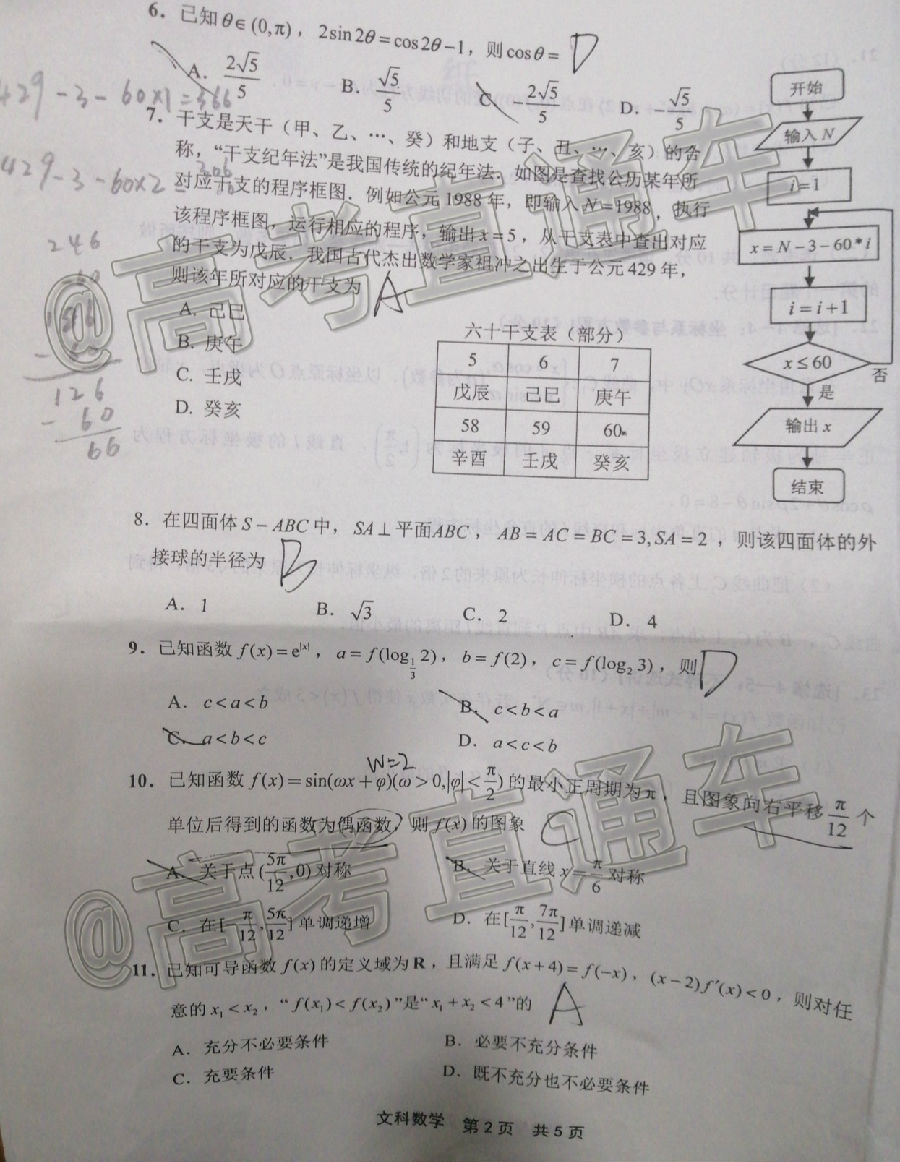 6. 已知θ∈(0,π)，2sin2θ=cos2θ-1，则cosθ= D
A. 2√5/5
B. √5/5
C. -2√5/5
D. -√5/5
429-3-60×1=366
429-3-60×2=306
246
60
126
-60
66
7. 干支是天干（甲、乙、…、癸）和地支（子、丑、…、亥）的合
称，“干支纪年法”是我国传统的纪年法．如图是查找公历某年所
对应干支的程序框图．例如公元1988年，即输入N=1988，执行
该程序框图，运行相应的程序，输出x=5，从干支表中查出对应
的干支为戊辰．我国古代杰出数学家祖冲之出生于公元429年，
则该年所对应的干支为 A
A. 己巳
B. 庚午
C. 壬戌
D. 癸亥
六十干支表（部分）
5 6 7
戊辰 己巳 庚午
58 59 60
辛酉 壬戌 癸亥
开始
输入N
i=1
x=N-3-60*i
i=i+1
x≤60
否
是
输出x
结束
8. 在四面体S-ABC中，SA⊥平面ABC，AB=AC=BC=3,SA=2，则该四面体的外
接球的半径为 B
A. 1
B. √3
C. 2
D. 4
9. 已知函数f(x)=e^|x|，a=f(log_{1/3}2)，b=f(2)，c=f(log_2 3)，则 D
A. c<a<b
B. c<b<a
C. a<b<c
D. a<c<b
W=2
10. 已知函数f(x)=sin(ωx+φ)(ω>0,|φ|<π/2)的最小正周期为π，且图象向右平移π/12个
单位后得到的函数为偶函数，则f(x)的图象 C
A. 关于点(5π/12,0)对称
B. 关于直线x=-π/6对称
C. 在[-π/12,5π/12]单调递增
D. 在[π/12,7π/12]单调递减
11. 已知可导函数f(x)的定义域为R，且满足f(x+4)=f(-x)，(x-2)f′(x)<0，则对任
意的x₁<x₂，“f(x₁)<f(x₂)”是“x₁+x₂<4”的 A
A. 充分不必要条件
B. 必要不充分条件
C. 充要条件
D. 既不充分也不必要条件
文科数学 第2页 共5页
@高考直通车
@高考直通车